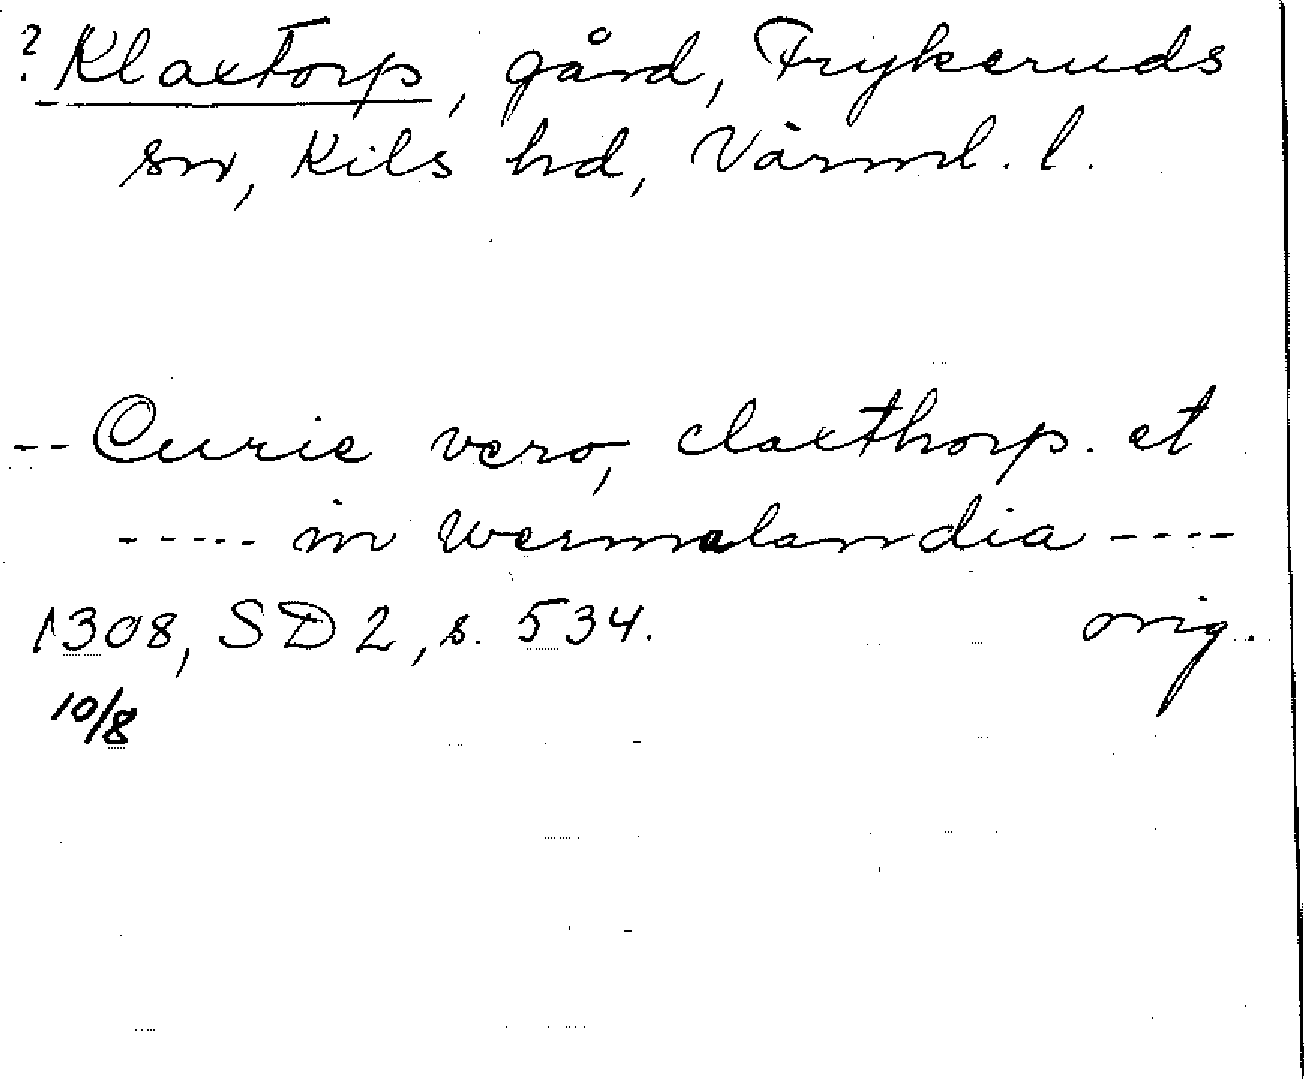 ? Klaxtorp, gård, Frykeruds
sn, Kils hd, Värml. l.
-- Curie vero, claxthorp. et
----- in wermelandia ----
1308, SD 2, s. 534. orig.
10/8